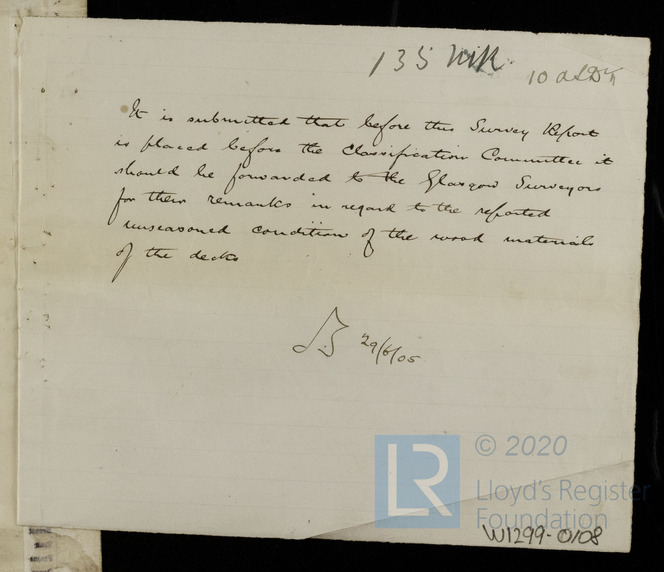 135
10
It is submitted that before this Survey Report
is placed before the Classification Committee it
should be forwarded to the Glasgow Surveyors
for their remarks in regard to the reported
unseasoned condition of the wood materials
of the decks
29/6/05
LR
© 2020
Lloyd's Register
Foundation
W1299-0108